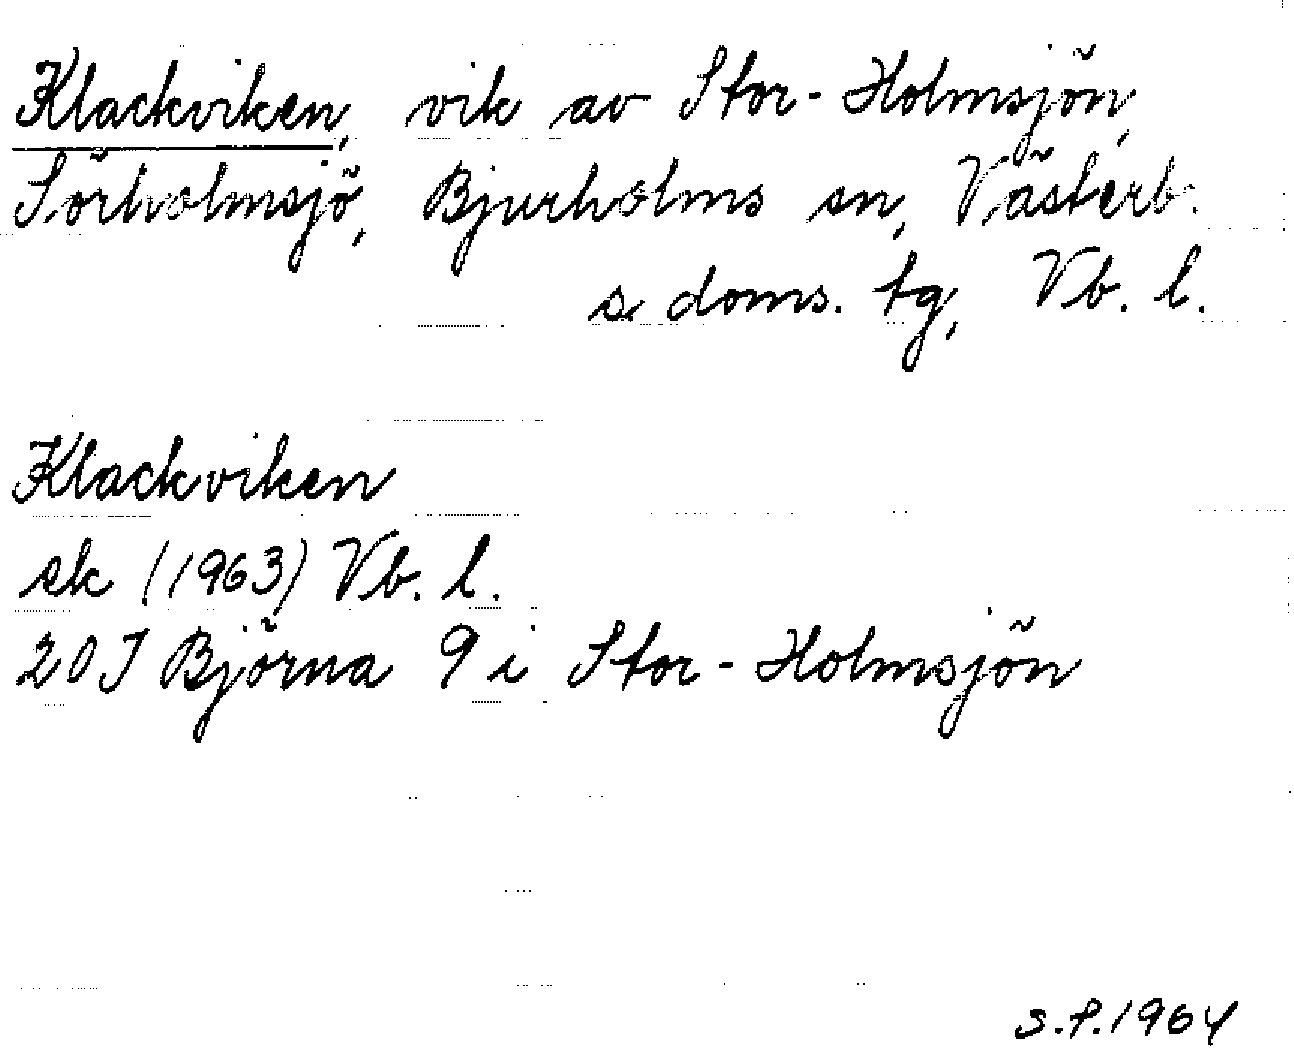 Klackviken, vik av Stor-Holmsjön,
Sörholmsjö, Bjurholms sn, Västerb.
s. doms. tg, Vb. l.
Klackviken
ek (1963) Vb. l.
20J Björna 9 i Stor-Holmsjön
S.P.1964